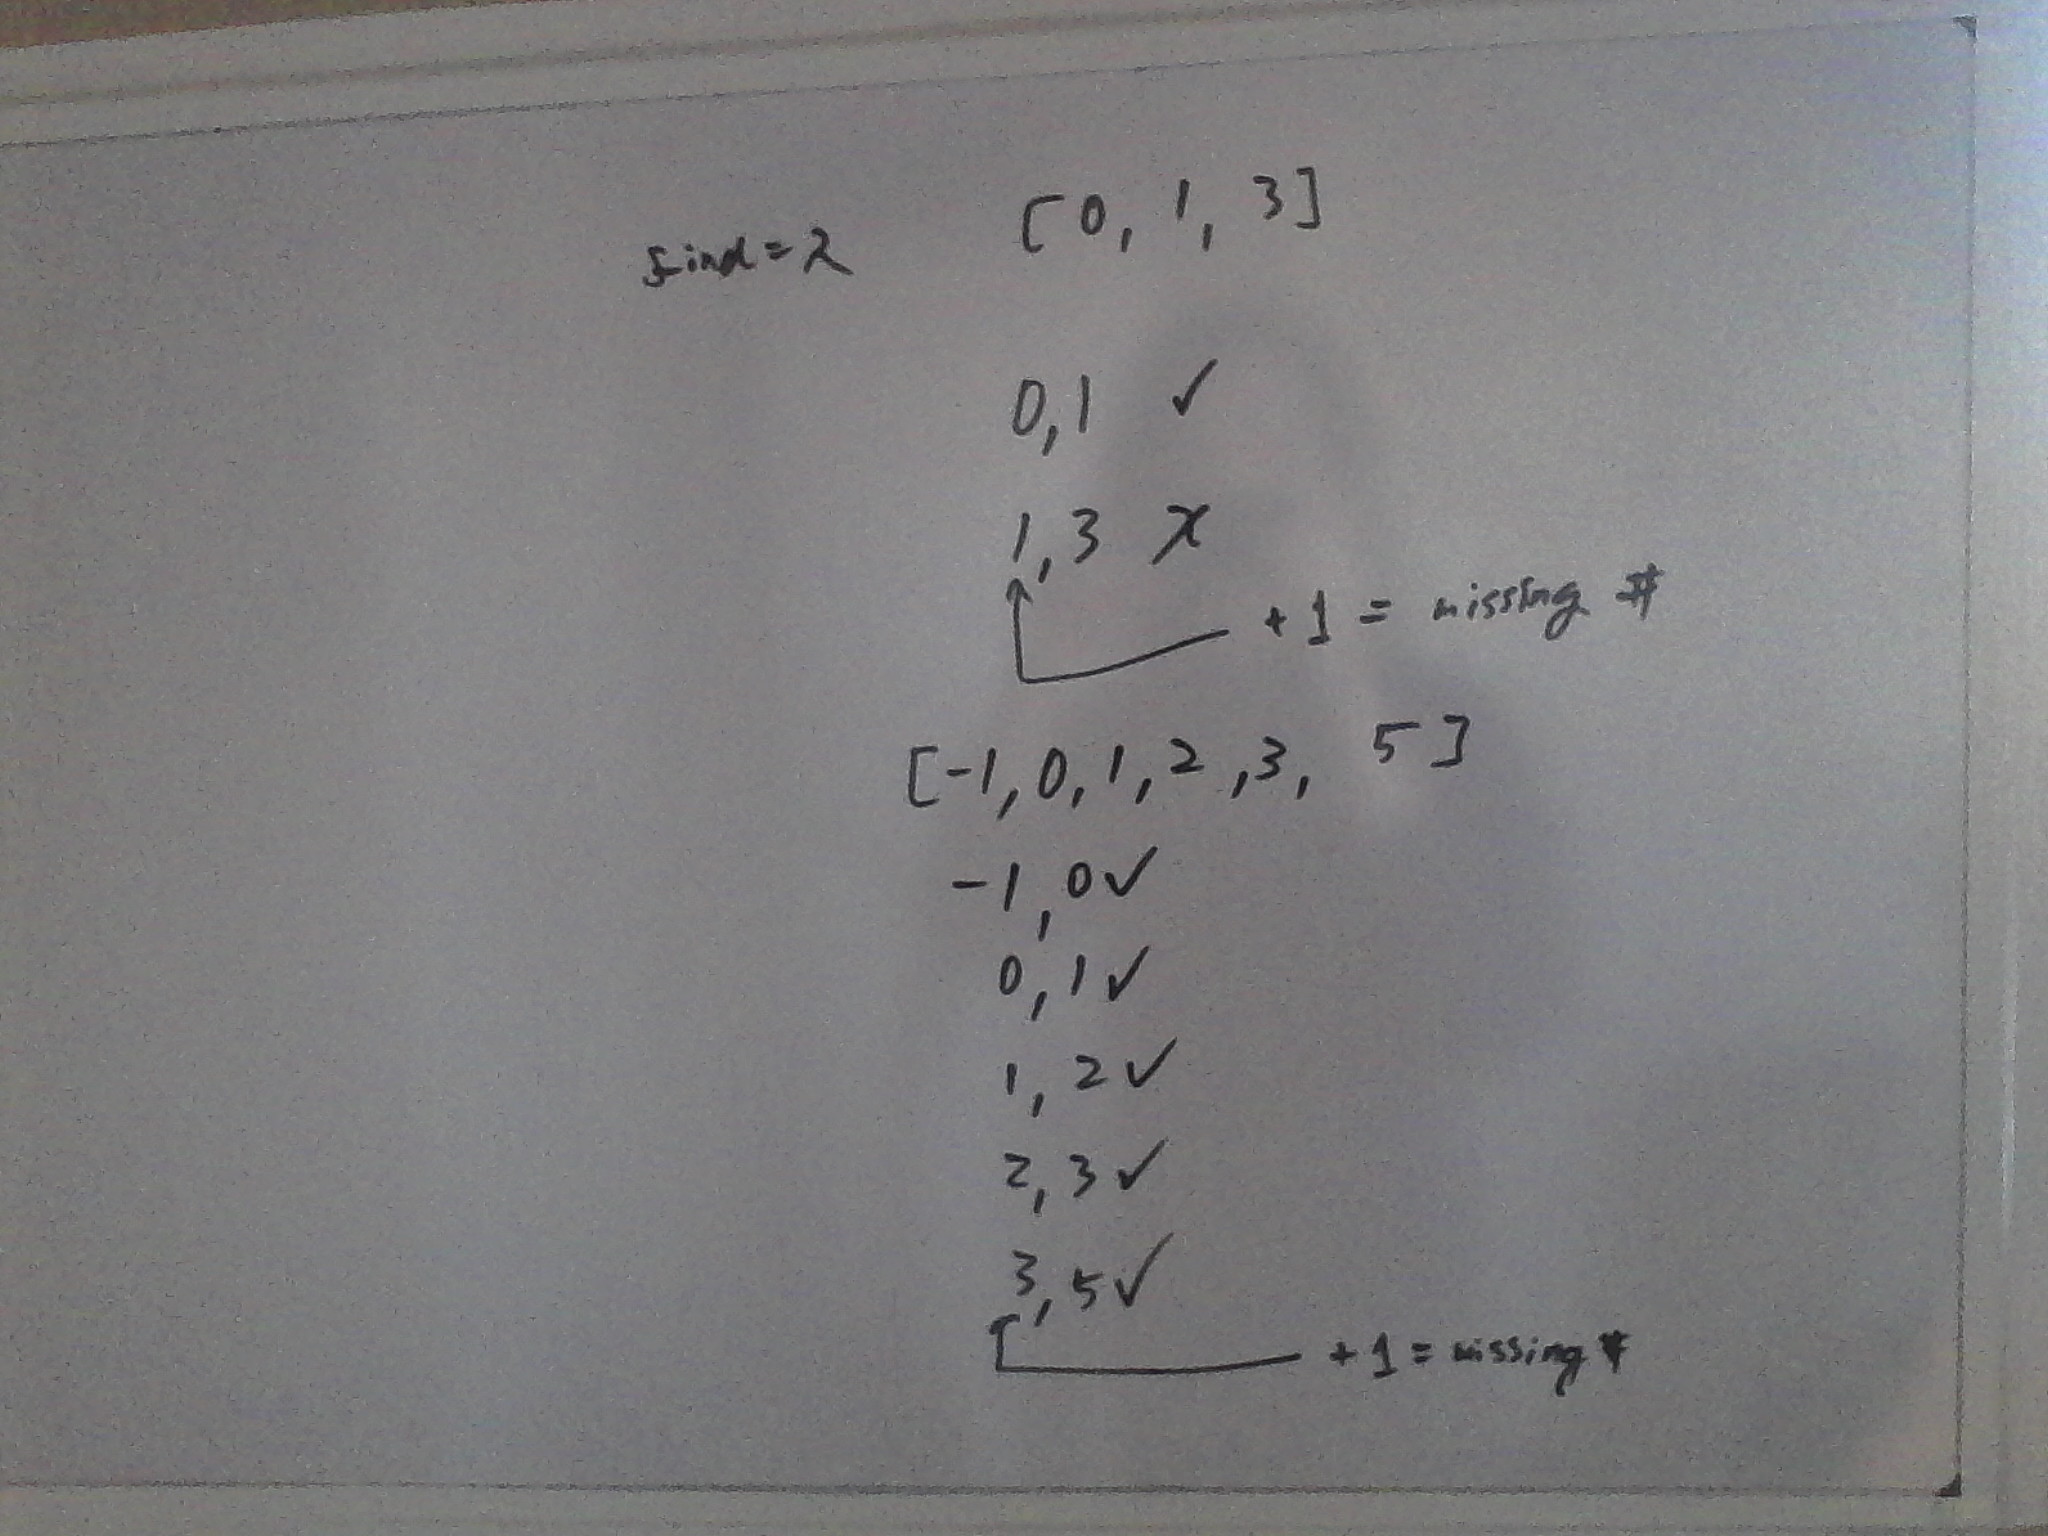 find = 2 [0, 1, 3]
0, 1 ✓
1, 3 x
+ 1 = missing #
[-1, 0, 1, 2, 3, 5]
-1, 0 ✓
0, 1 ✓
1, 2 ✓
2, 3 ✓
3, 5 ✓
+ 1 = missing #